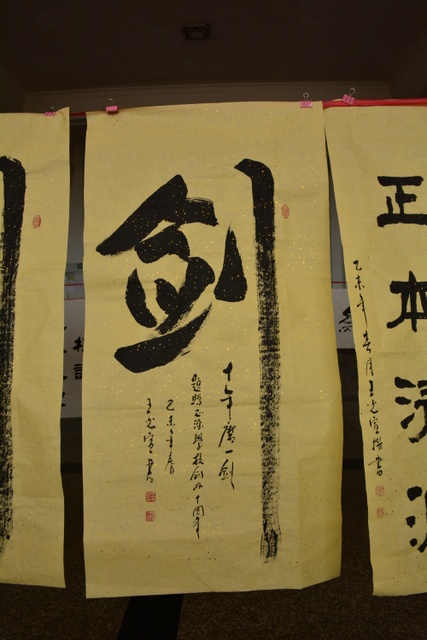 正本清源
乙未年春月王光宣撰书
剑
十年磨一剑
题赠正源学校创办十周年
乙未年春
王光宣书